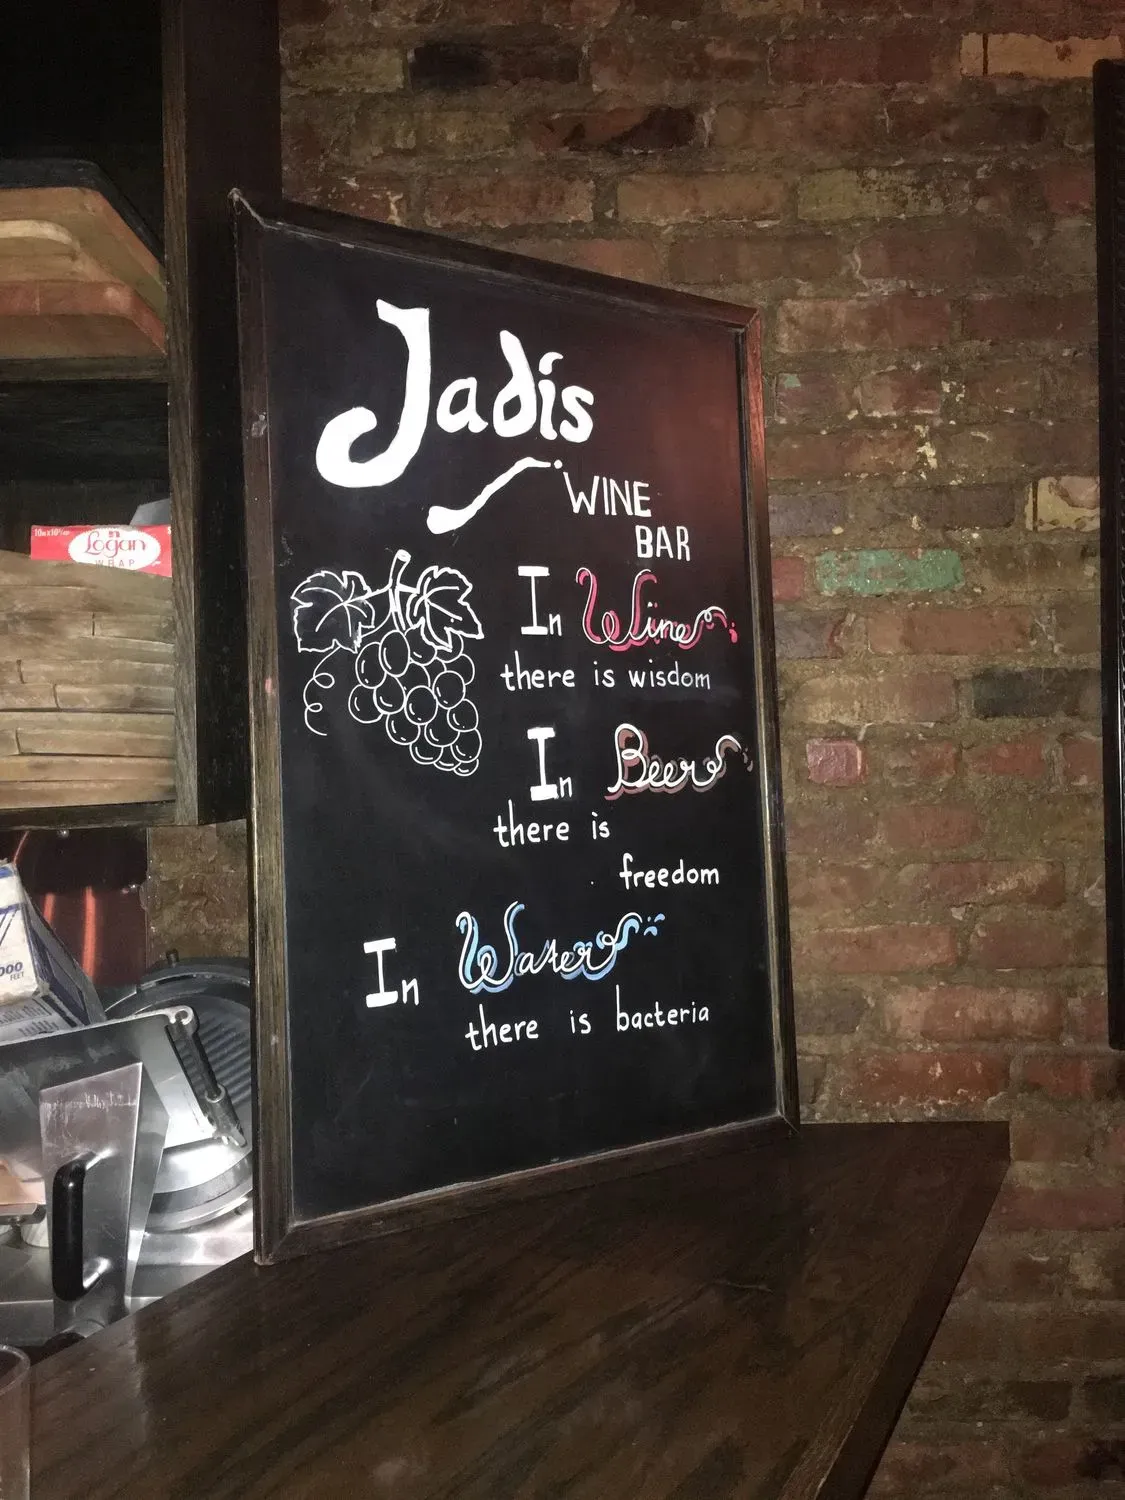 Jadis
WINE
BAR
In Wine
there is wisdom
In Beer
there is
freedom
In Water
there is bacteria
10in x 10¾in
Logan
WRAP
000
FEET